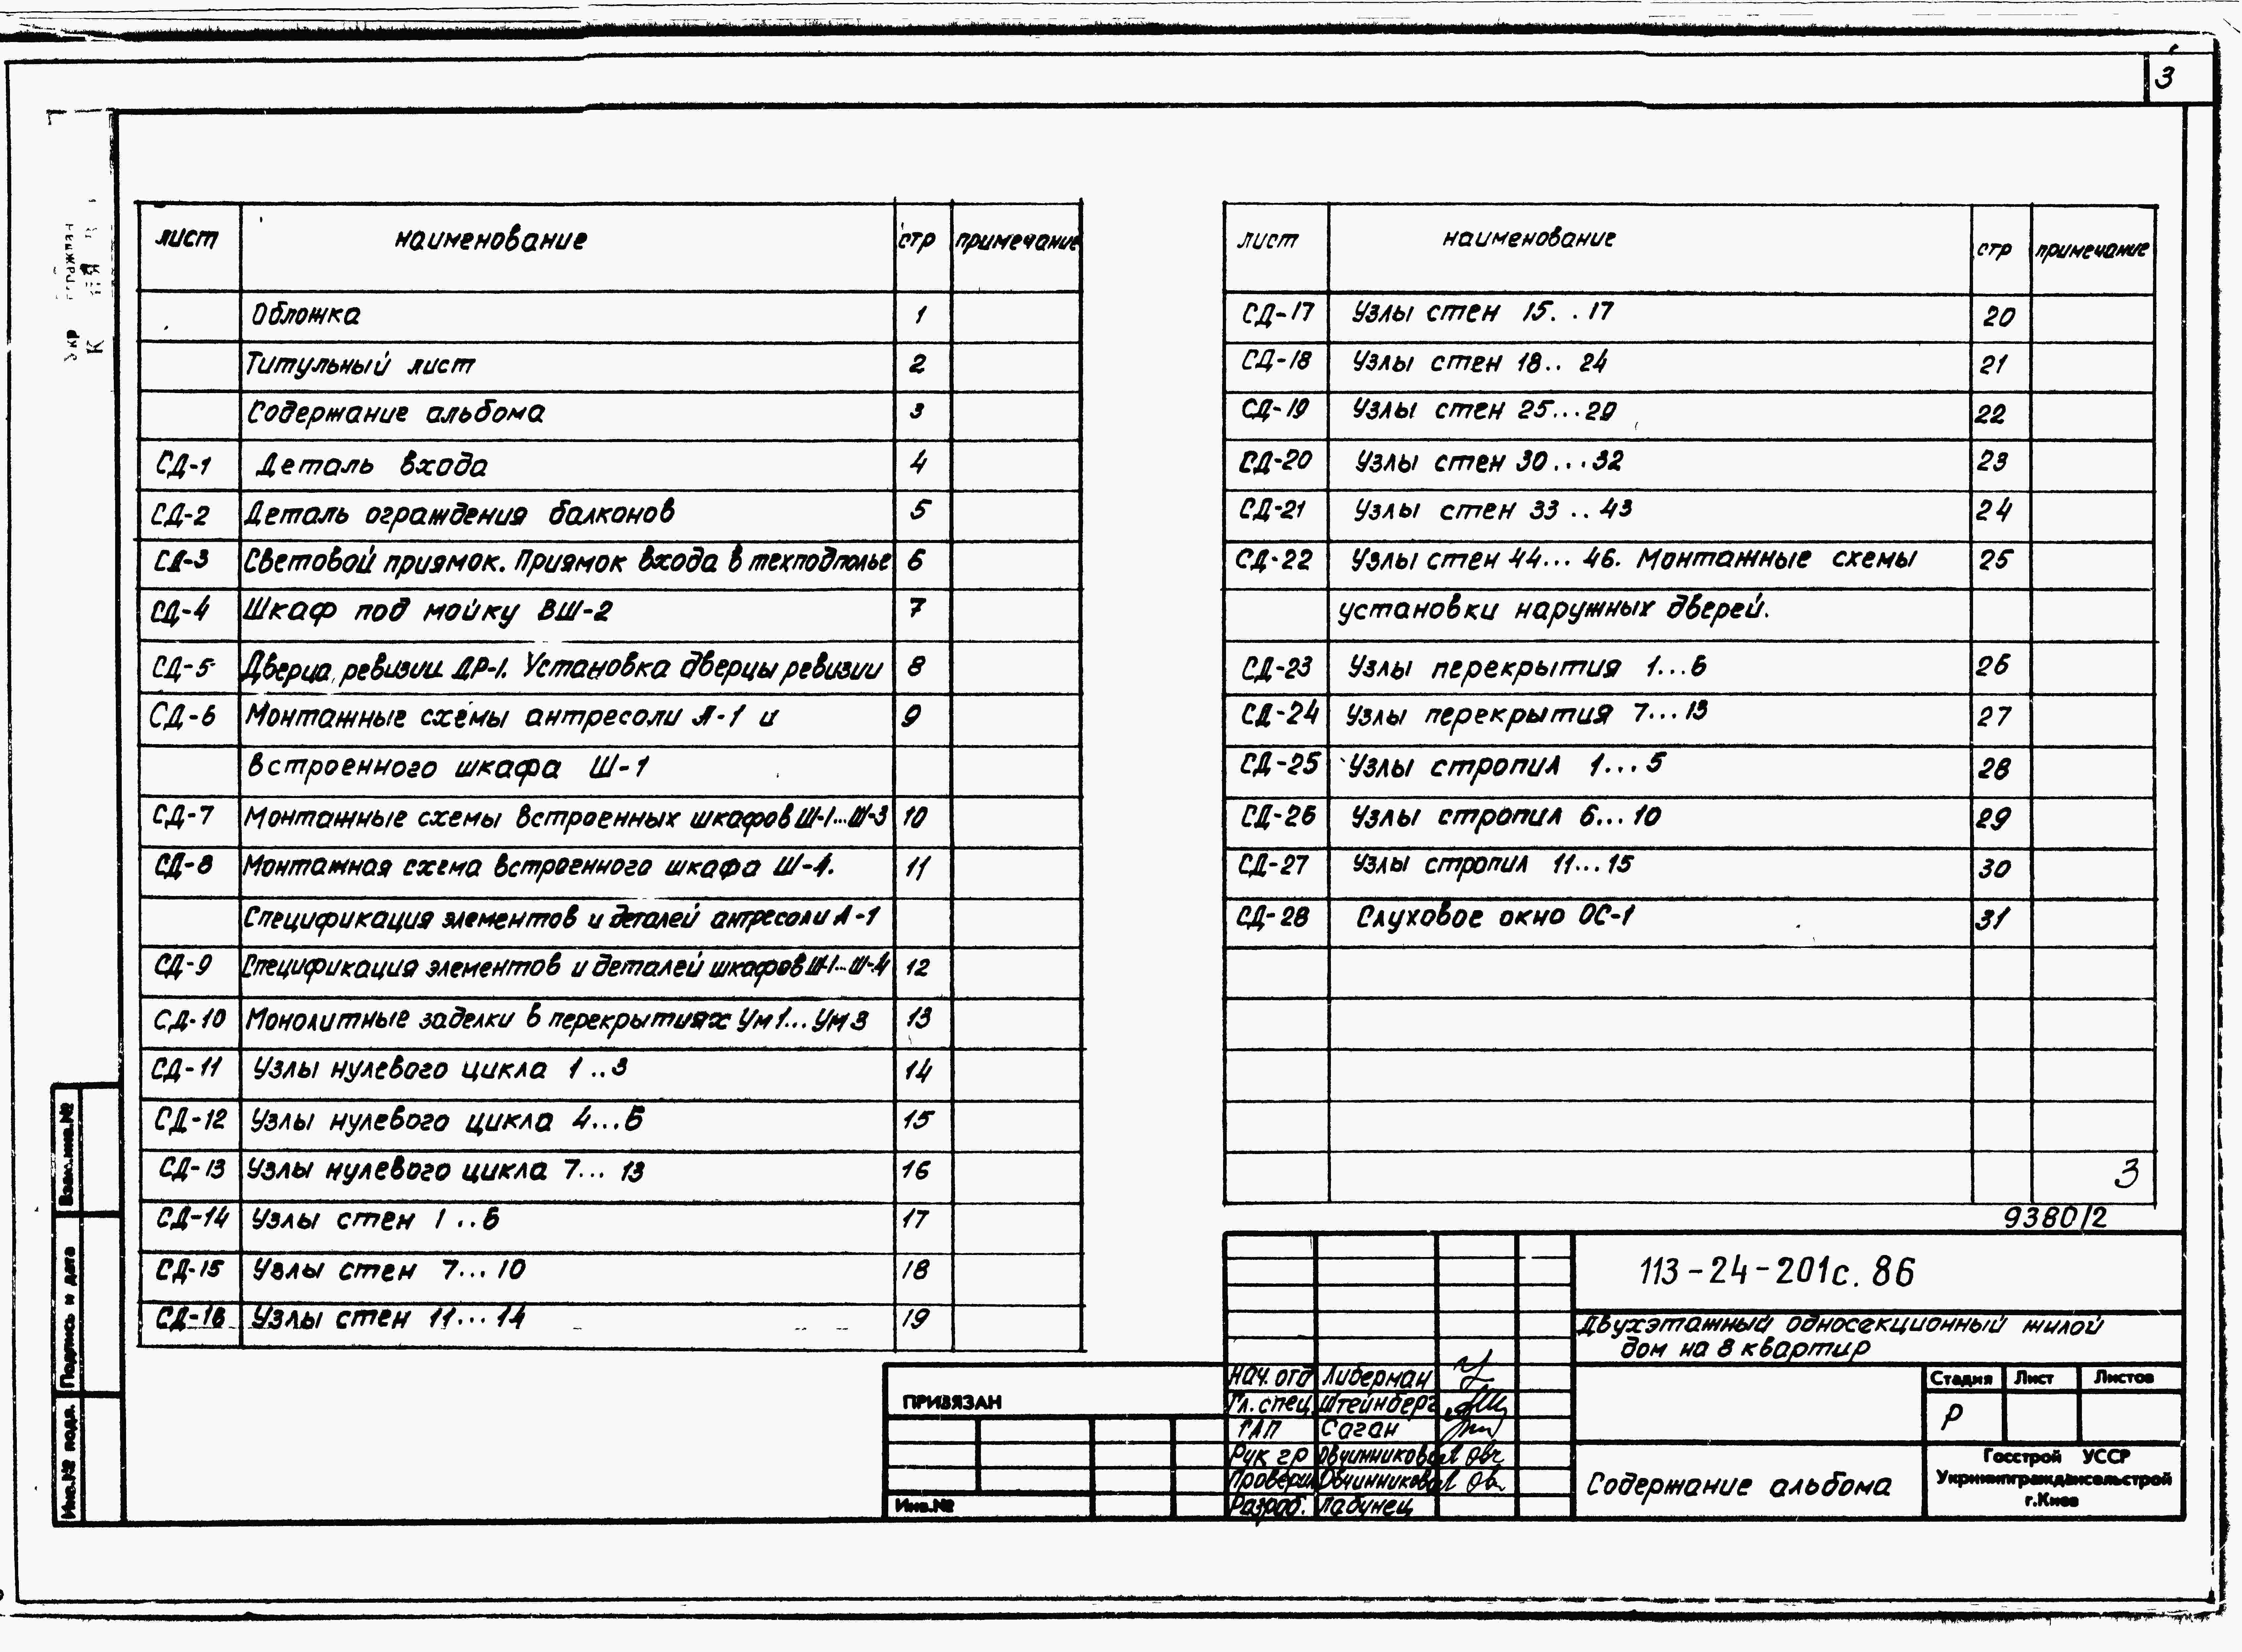 3
лист наименование стр примечание
Обложка 1
Титульный лист 2
Содержание альбома 3
СД-1 Деталь входа 4
СД-2 Деталь ограждения балконов 5
СД-3 Световой приямок. Приямок входа в техподполье 6
СД-4 Шкаф под мойку ВШ-2 7
СД-5 Дверца ревизии ДР-1. Установка дверцы ревизии 8
СД-6 Монтажные схемы антресоли А-1 и 9
встроенного шкафа Ш-1
СД-7 Монтажные схемы встроенных шкафов Ш-1...Ш-3 10
СД-8 Монтажная схема встроенного шкафа Ш-4. 11
Спецификация элементов и деталей антресоли А-1
СД-9 Спецификация элементов и деталей шкафов Ш-1...Ш-4 12
СД-10 Монолитные заделки в перекрытиях Ум1...Ум3 13
СД-11 Узлы нулевого цикла 1..3 14
СД-12 Узлы нулевого цикла 4...6 15
СД-13 Узлы нулевого цикла 7...13 16
СД-14 Узлы стен 1..6 17
СД-15 Узлы стен 7...10 18
СД-16 Узлы стен 11...14 19
лист наименование стр примечание
СД-17 Узлы стен 15...17 20
СД-18 Узлы стен 18..24 21
СД-19 Узлы стен 25...29 22
СД-20 Узлы стен 30...32 23
СД-21 Узлы стен 33..43 24
СД-22 Узлы стен 44...46. Монтажные схемы 25
установки наружных дверей.
СД-23 Узлы перекрытия 1...6 26
СД-24 Узлы перекрытия 7...13 27
СД-25 Узлы стропил 1...5 28
СД-26 Узлы стропил 6...10 29
СД-27 Узлы стропил 11...15 30
СД-28 Слуховое окно ОС-1 31
3
9380/2
113-24-201с.86
Двухэтажный односекционный жилой
дом на 8 квартир
Нач. отд Либерман
Гл. спец. Штейнберг
ГАП Саган
Рук гр Овчинникова
Проверил Овчинникова
Разраб. Лабунец
Стадия Лист Листов
Р
Содержание альбома
Госстрой УССР
Укрниипграждансельстрой
г.Киев
ПРИВЯЗАН
Инв.№
Взам.инв.№
Подпись и дата
Инв.№ подл.